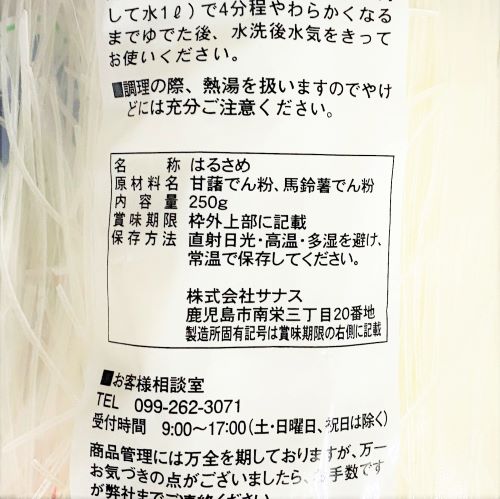 して水1ℓ)で4分程やわらかくなる
までゆでた後、水洗後水気をきって
お使いください。
■調理の際、熱湯を扱いますのでやけ
どには充分ご注意ください。
名称 はるさめ
原材料名 甘藷でん粉、馬鈴薯でん粉
内容量 250g
賞味期限 枠外上部に記載
保存方法 直射日光・高温・多湿を避け、
常温で保存してください。
株式会社サナス
鹿児島市南栄三丁目20番地
製造所固有記号は賞味期限の右側に記載
■お客様相談室
TEL 099-262-3071
受付時間 9:00〜17:00(土・日曜日、祝日は除く)
商品管理には万全を期しておりますが、万一
お気づきの点がございましたら、お手数です
が弊社まで